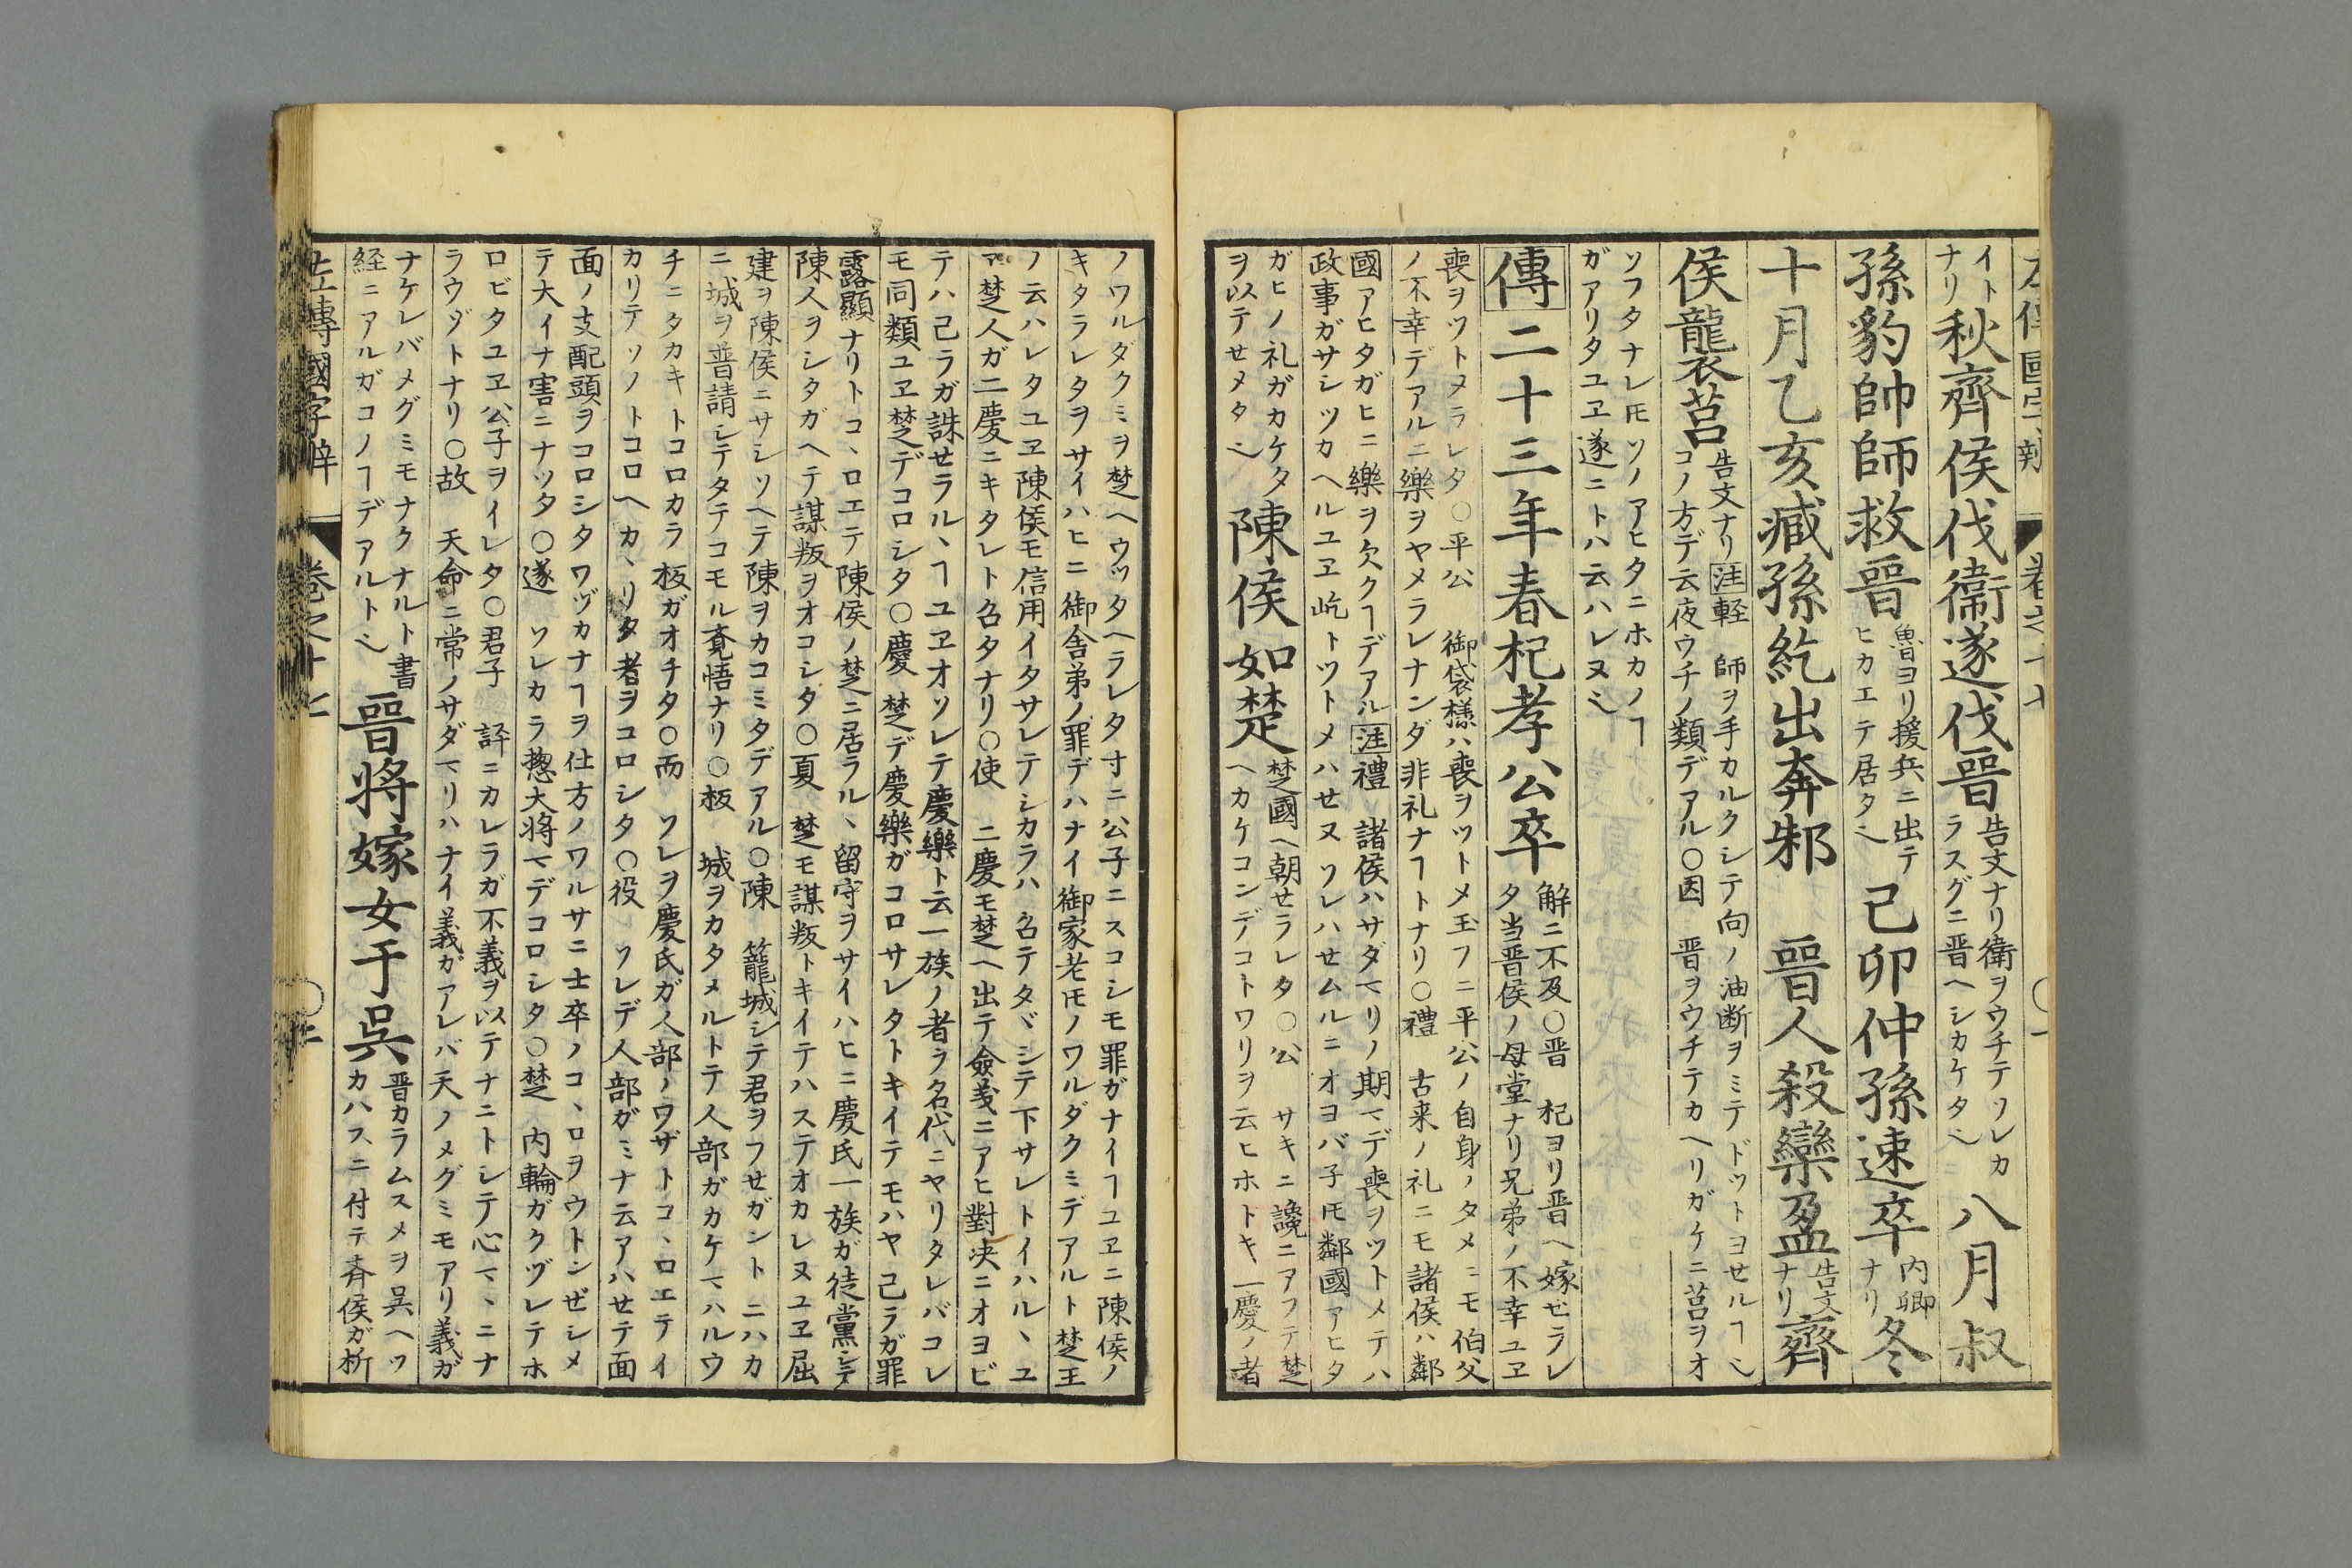 イト
ナリ
秋齊侯伐衞遂伐晉
告文ナリ衛ヲウチテソレカ
ラスグニ晋ヘシカケタ〻
八月叔
孫豹帥師救晉
魯ヨリ援兵ニ出テ
ヒカエテ居タ〻
己卯仲孫速卒
内卿
ナリ
冬
十月乙亥臧孫紇出奔邾　晉人殺欒盈
告文
ナリ
齊
侯襲莒
告文ナリ注軽　師ヲ手カルクシテ向ノ油断ヲミテドットヨせルヿ〻
コノ方デ云夜ウチノ類デアル〇因　晋ヲウチテカヘリガケニ莒ヲオ
ソフタナレ𪜈ソノアヒタニホカノヿ
ガアリタユヱ遂ニトハ云ハレヌ〻
傳二十三年春杞孝公卒
解ニ不及〇晋　杞ヨリ晋ヘ嫁せラレ
タ当晋侯ノ母堂ナリ兄弟ノ不幸ユヱ
喪ヲツトメラレタ〇平公　御袋様ハ喪ヲツトメ玉フニ平公ノ自身ノタメニモ伯父
ノ不幸デアルニ樂ヲヤメラレナンダ非礼ナヿトナリ〇禮　古来ノ礼ニモ諸侯ハ鄰
國アヒタガヒニ樂ヲ欠クヿデアル注禮　諸侯ハサダマリノ期マデ喪ヲツトメテハ
政事ガサシツカヘルユヱ屹トツトメハせヌソレハせムルニオヨバ子𪜈鄰國アヒタ
ガヒノ礼ガカケタ
ヲ以テせメタ〻
陳侯如楚
楚國ヘ朝せラレタ〇公　サキニ讒ニアフテ楚
ヘカケコンデコトワリヲ云ヒホトキ二慶ノ者
ノワルダクミヲ楚ヘウッタヘラレタ寸ニ公子ニスコシモ罪ガナイヿユヱニ陳侯ノ
キタラレタヲサイハヒニ御舎弟ノ罪デハナイ御家老𪜈ノワルダクミデアルト楚王
ノ云ハレタユヱ陳侯モ信用イタサレテシカラハ召テタヾシテ下サレトイハル、ユ
ヱ楚人ガ二慶ニキタレト召タナリ〇使　二慶モ楚ヘ出テ僉義ニアヒ對决ニオヨビ
テハ己ラガ誅せラル、ヿユヱオソレテ慶樂ト云一族ノ者ヲ名代ニヤリタレバコレ
モ同類ユヱ楚デコロシタ〇慶　楚デ慶樂ガコロサレタトキイテモハヤ己ラガ罪
露顯ナリトコ、ロエテ陳侯ノ楚ニ居ラル、留守ヲサイハヒニ慶氏一族ガ徒黨シテ
陳人ヲシタガヘテ謀叛ヲオコシタ〇夏　楚モ謀叛トキイテハステオカレヌユヱ屈
建ヲ陳侯ニサシソヘテ陳ヲカコミタデアル〇陳　籠城シテ君ヲフせガント二ハカ
ニ城ヲ普請シテタテコモル覚悟ナリ〇板　城ヲカタメルトテ人部ガカケマハルウ
チニタカキトコロカラ板ガオチタ〇而　ソレヲ慶氏ガ人部ノワザトコ、ロエテイ
カリテソノトコロヘカ、リタ者ヲコロシタ〇役　ソレデ人部ガミナ云アハせテ面
面ノ支配頭ヲコロシタワヅカナヿヲ仕方ノワルサニ士卒ノコ、ロヲウトンぜシメ
テ大イナ害ニナッタ〇遂　ソレカラ惣大将マデコロシタ〇楚　内輪ガクヅレテホ
ロビタユヱ公子ヲイレタ〇君子　評ニカレラガ不義ヲ以テナニトシテ心マ、ニナ
ラウゾトナリ〇故　天命ニ常ノサダマリハナイ義ガアレバ天ノメグミモアリ義ガ
ナケレバメグミモナクナルト書
経ニアルガコノヿデアルト〻
晉將嫁女于呉
晋カラムスメヲ呉ヘツ
カハスニ付テ斉侯ガ析
左傳國字辯　巻之十七